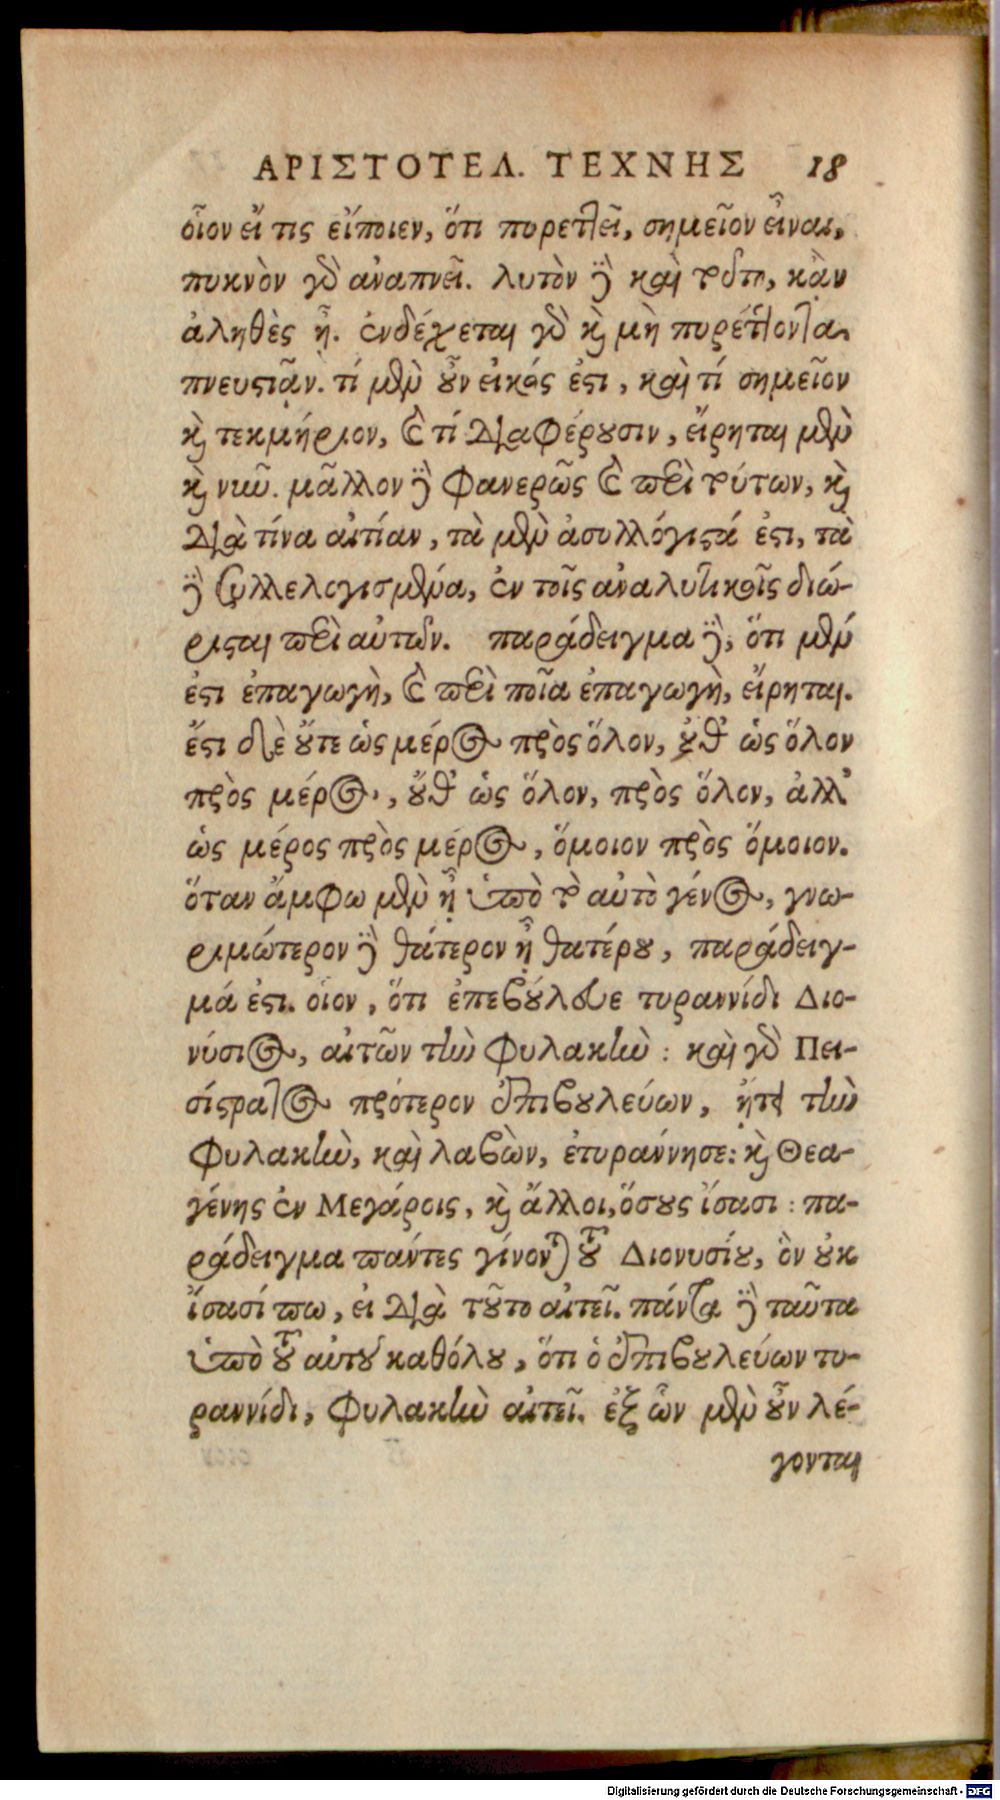 ΑΡΙΣΤΟΤΕΛ. ΤΕΧΝΗΣ 18
οἷον εἴ τις εἴποιεν, ὅτι πυρεττεῖ, σημεῖον εἶναι,
πυκνὸν γὸ ἀναπνεῖ. λυτὸν δὲ καὶ τοῦτο, κἂν
ἀληθὲς ᾖ. ἐνδέχεται γὸ κὶ μὴ πυρέττοντα
πνευστιᾷν. τί μὲν οὖν εἰκός ἐστι, καὶ τί σημεῖον
κὶ τεκμήριον, καὶ τί διαφέρουσιν, εἴρηται μὲν
κὶ νῦν. μᾶλλον δὲ φανερῶς καὶ περὶ τούτων, κὶ
διὰ τίνα αἰτίαν, τὰ μὲν ἀσυλλόγιστά ἐστι, τὰ
δὲ συλλελογισμένα, ἐν τοῖς ἀναλυτικοῖς διώ-
ρισται περὶ αὐτῶν. παράδειγμα δὲ, ὅτι μέν
ἐστι ἐπαγωγὴ, καὶ περὶ ποῖα ἐπαγωγὴ, εἴρηται.
ἔστι δὲ οὔτε ὡς μέρος πρὸς ὅλον, οὔθ' ὡς ὅλον
πρὸς μέρος, οὔθ' ὡς ὅλον, πρὸς ὅλον, ἀλλ'
ὡς μέρος πρὸς μέρος, ὅμοιον πρὸς ὅμοιον.
ὅταν ἄμφω μὲν ᾖ ὑπὸ τὸ αὐτὸ γένος, γνω-
ριμώτερον δὲ θάτερον ᾖ θατέρου, παράδειγ-
μά ἐστι. οἷον, ὅτι ἐπεβούλευε τυραννίδι Διο-
νύσιος, αἰτῶν τὴν φυλακὴν: καὶ γὸ Πει-
σίστρατος πρότερον ἐπιβουλεύων, ᾔτει τὴν
φυλακὴν, καὶ λαβὼν, ἐτυράννησε: κὶ Θεα-
γένης ἐν Μεγάροις, κὶ ἄλλοι, ὅσους ἴσασι: πα-
ράδειγμα πάντες γίνονται τοῦ Διονυσίου, ὃν οὐκ
ἴσασί πω, εἰ διὰ τοῦτο αἰτεῖ. πάντα δὲ ταῦτα
ὑπὸ τοῦ αὐτοῦ καθόλου, ὅτι ὁ ἐπιβουλεύων τυ-
ραννίδι, φυλακὴν αἰτεῖ. ἐξ ὧν μὲν οὖν λέ-
γονται
Digitalisierung gefördert durch die Deutsche Forschungsgemeinschaft - DFG